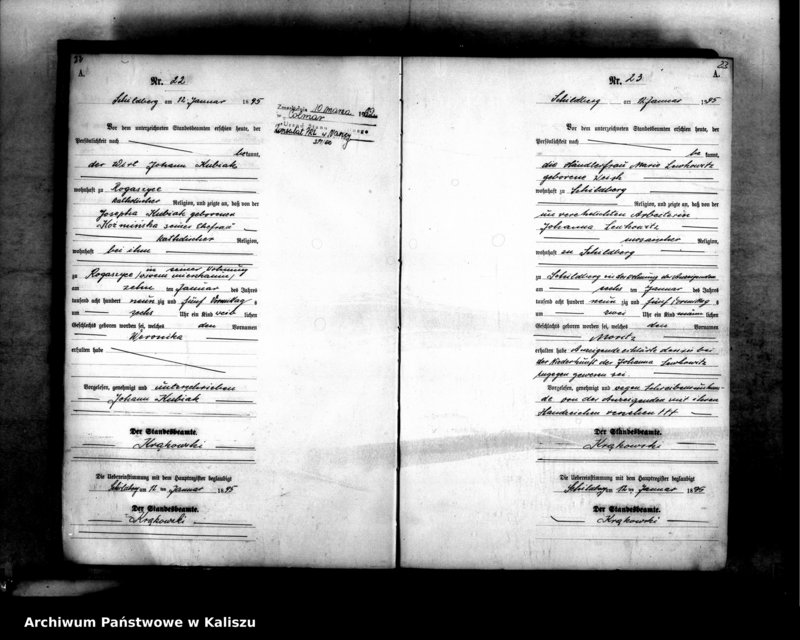 22
A.
Nr. 22
Schildberg am 12 Januar 1895
Vor dem unterzeichneten Standesbeamten erschien heute, der
Persönlichkeit nach
bekannt,
der Wirt Johann Kubiak
wohnhaft zu Rogaszyce
katholischer Religion, und zeigte an, daß von der
Josepha Kubiak geborenen
Kozminska seiner Ehefrau
katholischer Religion,
wohnhaft bei ihm
zu Rogaszyce in seiner Wohnung
am zehn ten Januar des Jahres
tausend acht hundert neun zig und fünf Vormittag s
um sechs Uhr ein Kind weib lichen
Geschlechts geboren worden sei, welches den Vornamen
Weronika
erhalten habe
Vorgelesen, genehmigt und unterschrieben
Johann Kubiak
Der Standesbeamte.
Krąkowski
Die Uebereinstimmung mit dem Hauptregister beglaubigt
Schildberg am 12 ten Januar 1895
Der Standesbeamte.
Krąkowski
10 marca
Colmar
Nancy
23
A.
Nr. 23
Schildberg am 12 Januar 1895
Vor dem unterzeichneten Standesbeamten erschien heute, der
Persönlichkeit nach
be kannt,
die Händlerfrau Marie Lewkowitz
geborene
wohnhaft zu Schildberg
Religion, und zeigte an, daß von der
unverehelichten Arbeiterin
Johanna Lewkowitz
mosaischer Religion,
wohnhaft zu Schildberg
zu Schildberg in der Wohnung der Anzeigenden
am sechs ten Januar des Jahres
tausend acht hundert neun zig und fünf Vormittag s
um zwei Uhr ein Kind männ lichen
Geschlechts geboren worden sei, welches den Vornamen
Moritz
erhalten habe Anzeigende erklärte dass sie bei
der Niederkunft der Johanna Lewkowitz
zugegen gewesen sei
Vorgelesen, genehmigt und wegen Schreibensunkun-
de von der Anzeigenden mit ihrem
Handzeichen versehen +++
Der Standesbeamte.
Krąkowski
Die Uebereinstimmung mit dem Hauptregister beglaubigt
Schildberg am 12 ten Januar 1895
Der Standesbeamte.
Krąkowski
Archiwum Państwowe w Kaliszu